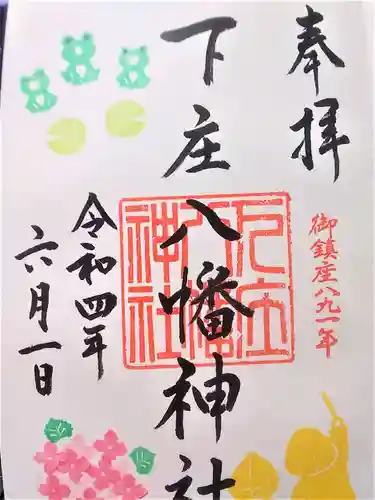 奉拝
御鎮座八九一年
下庄八幡神社
下庄八幡神社
令和四年
六月一日